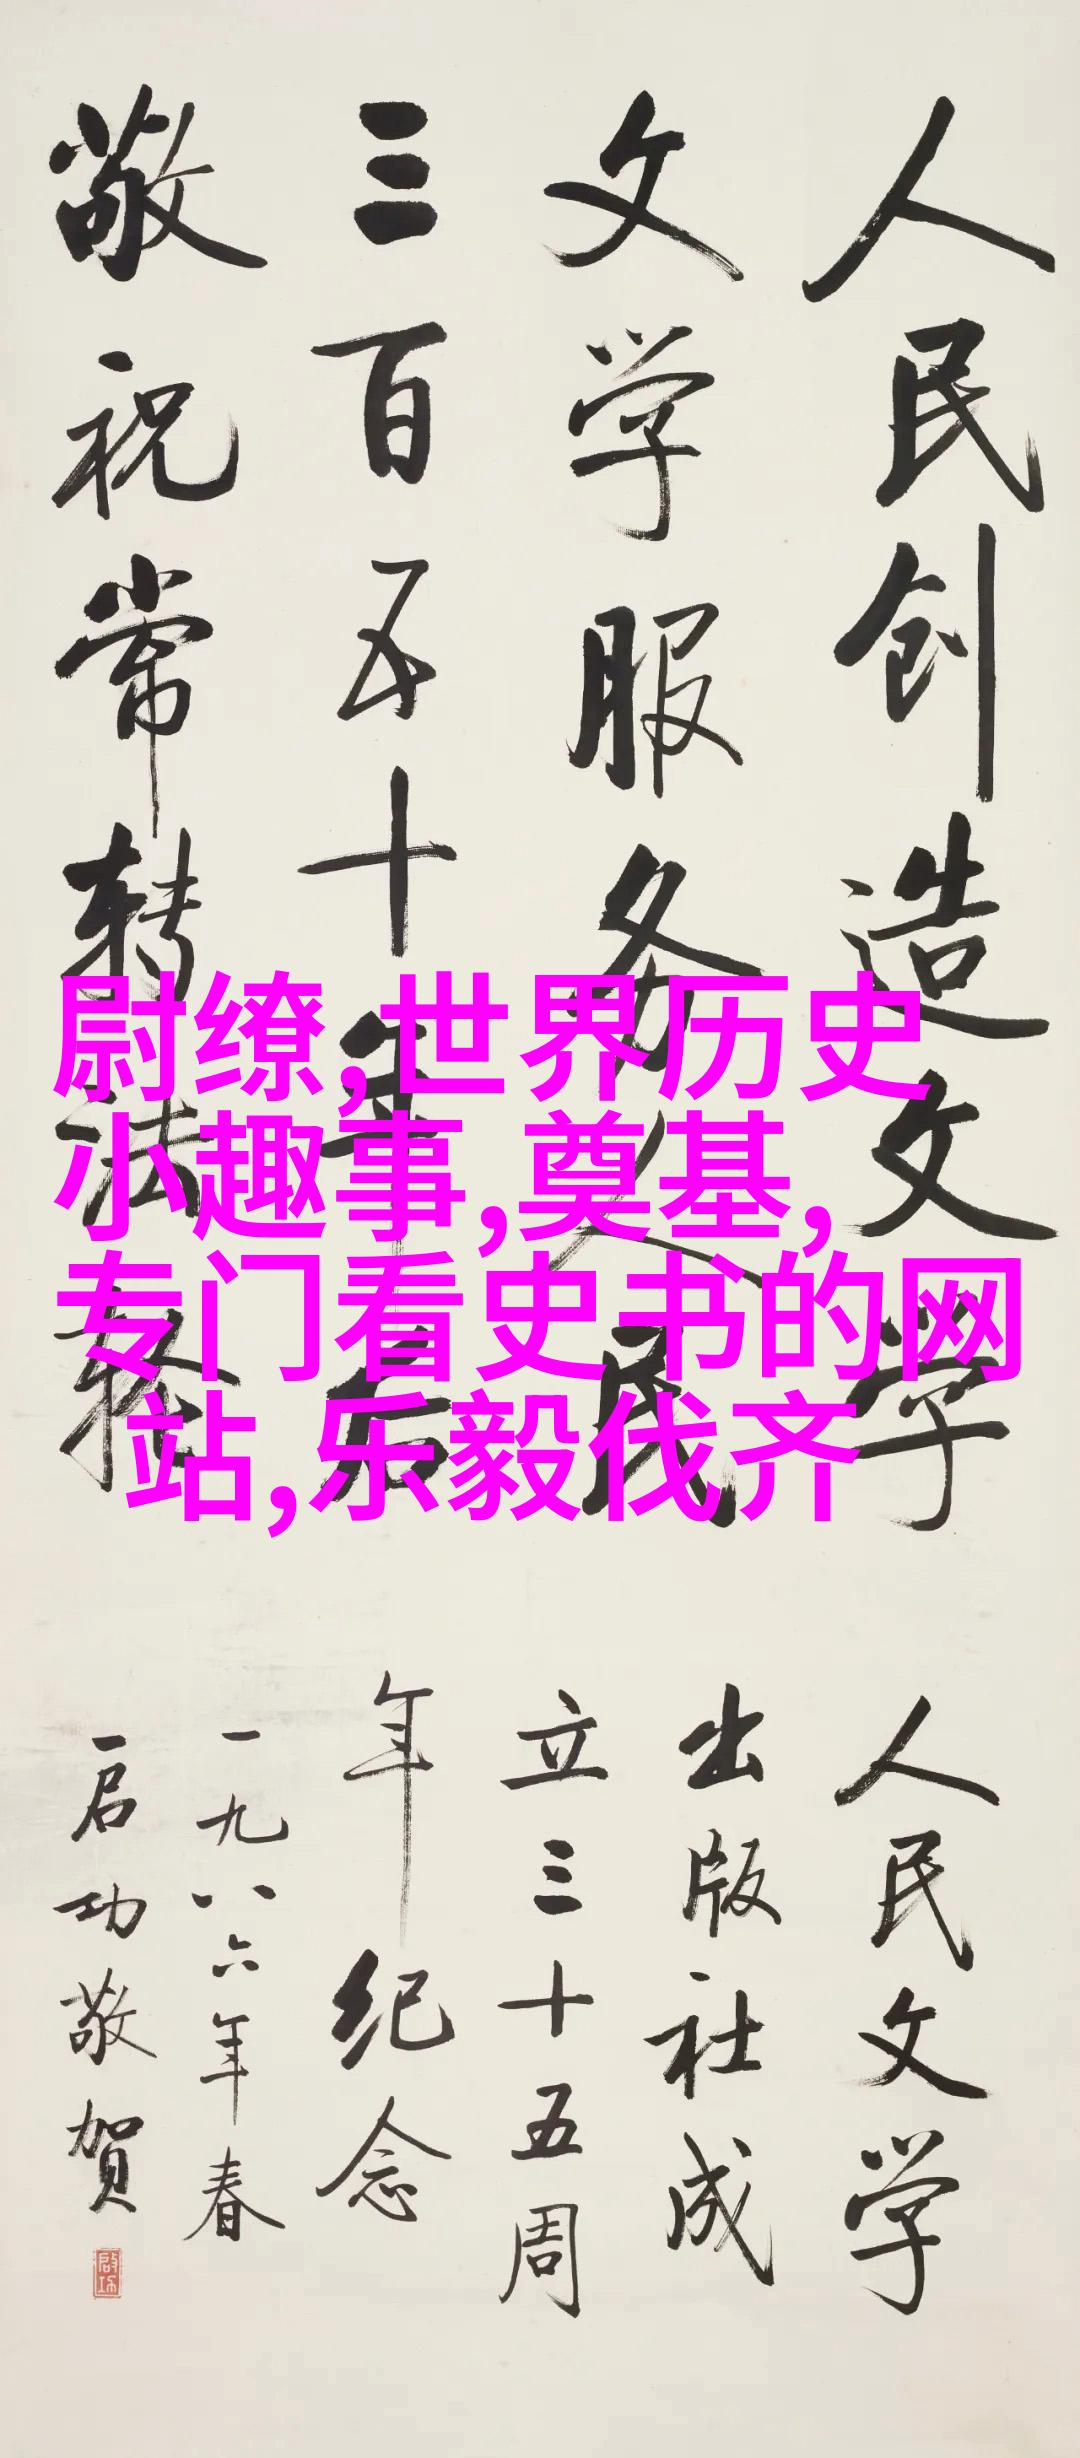 人民创造文学
文学服务人民
三百五十年后
敬祝常转法轮
人民文学
出版社成
立三十五周
年纪念
一九八六年春
启功敬贺
启功
尉缭,世界历史
小趣事,奠基,
专门看史书的网
站,乐毅伐齐